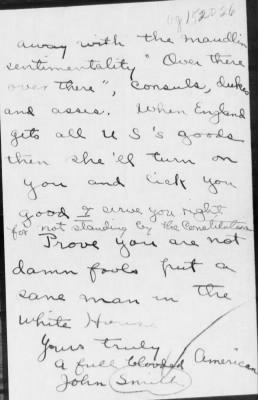 og 152026
away with the maudlin
sentimentality "Over there
over there", consuls, dukes
and asses. When England
gets all U S's goods
then she'll turn on
you and lick you
good & serve you right
for not standing by the Constitution
Prove you are not
damn fools put a
sane man in the
White House
Yours truly
a full blooded American
John Smith